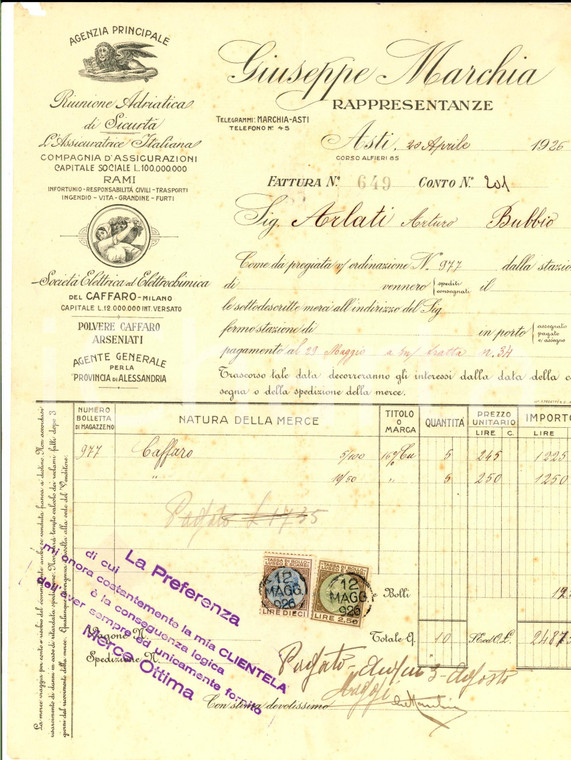 AGENZIA PRINCIPALE
Riunione Adriatica
di Sicurtà
L'Assicuratrice Italiana
COMPAGNIA D'ASSICURAZIONI
CAPITALE SOCIALE L. 100.000.000
RAMI
INFORTUNIO - RESPONSABILITÀ CIVILI - TRASPORTI
INCENDIO - VITA - GRANDINE - FURTI
Società Elettrica ed Elettrochimica
DEL CAFFARO - MILANO
CAPITALE L. 12.000.000 INT. VERSATO
POLVERE CAFFARO
ARSENIATI
AGENTE GENERALE
PER LA
PROVINCIA DI ALESSANDRIA
Giuseppe Marchia
RAPPRESENTANZE
TELEGRAMMI: MARCHIA-ASTI
TELEFONO N° 45
Asti, 20 Aprile 1926
CORSO ALFIERI 85
FATTURA N° 649 CONTO N° 201
Sig. Arlati Arturo Bubbio
Come da pregiata v/ ordinazione N. 977 dalla stazio
di vennero spediti consegnati il
le sottodescritte merci all'indirizzo del Sig.
fermo stazione di in porto assegnato pagato e assegno
pagamento al 29 Maggio a tratta n. 34
Trascorso tale data decorreranno gli interessi dalla data della c
segna o della spedizione della merce.
NUMERO BOLLETTA DI MAGAZZENO
NATURA DELLA MERCE
TITOLO O MARCA
QUANTITÀ
PREZZO UNITARIO
LIRE C.
IMPORTO
LIRE
977 Caffaro 5/100 16% Cu 5 245 1225
" 10/50 5 250 1250
Pagato £ 1735
La Preferenza
di cui
mi onora costantemente la mia CLIENTELA
è la conseguenza logica
dell'aver sempre ed unicamente fornito
Merce Ottima
TASSA DI BOLLO
LIRE DIECI
12
MAGG.
926
TASSA DI BOLLO
LIRE 2.50
12
MAGG.
926
Bolli 12
Vagone N.
Totale Q. 10 2487
Spedizione N.
Pagato
Agosto
Con stima devotissimo